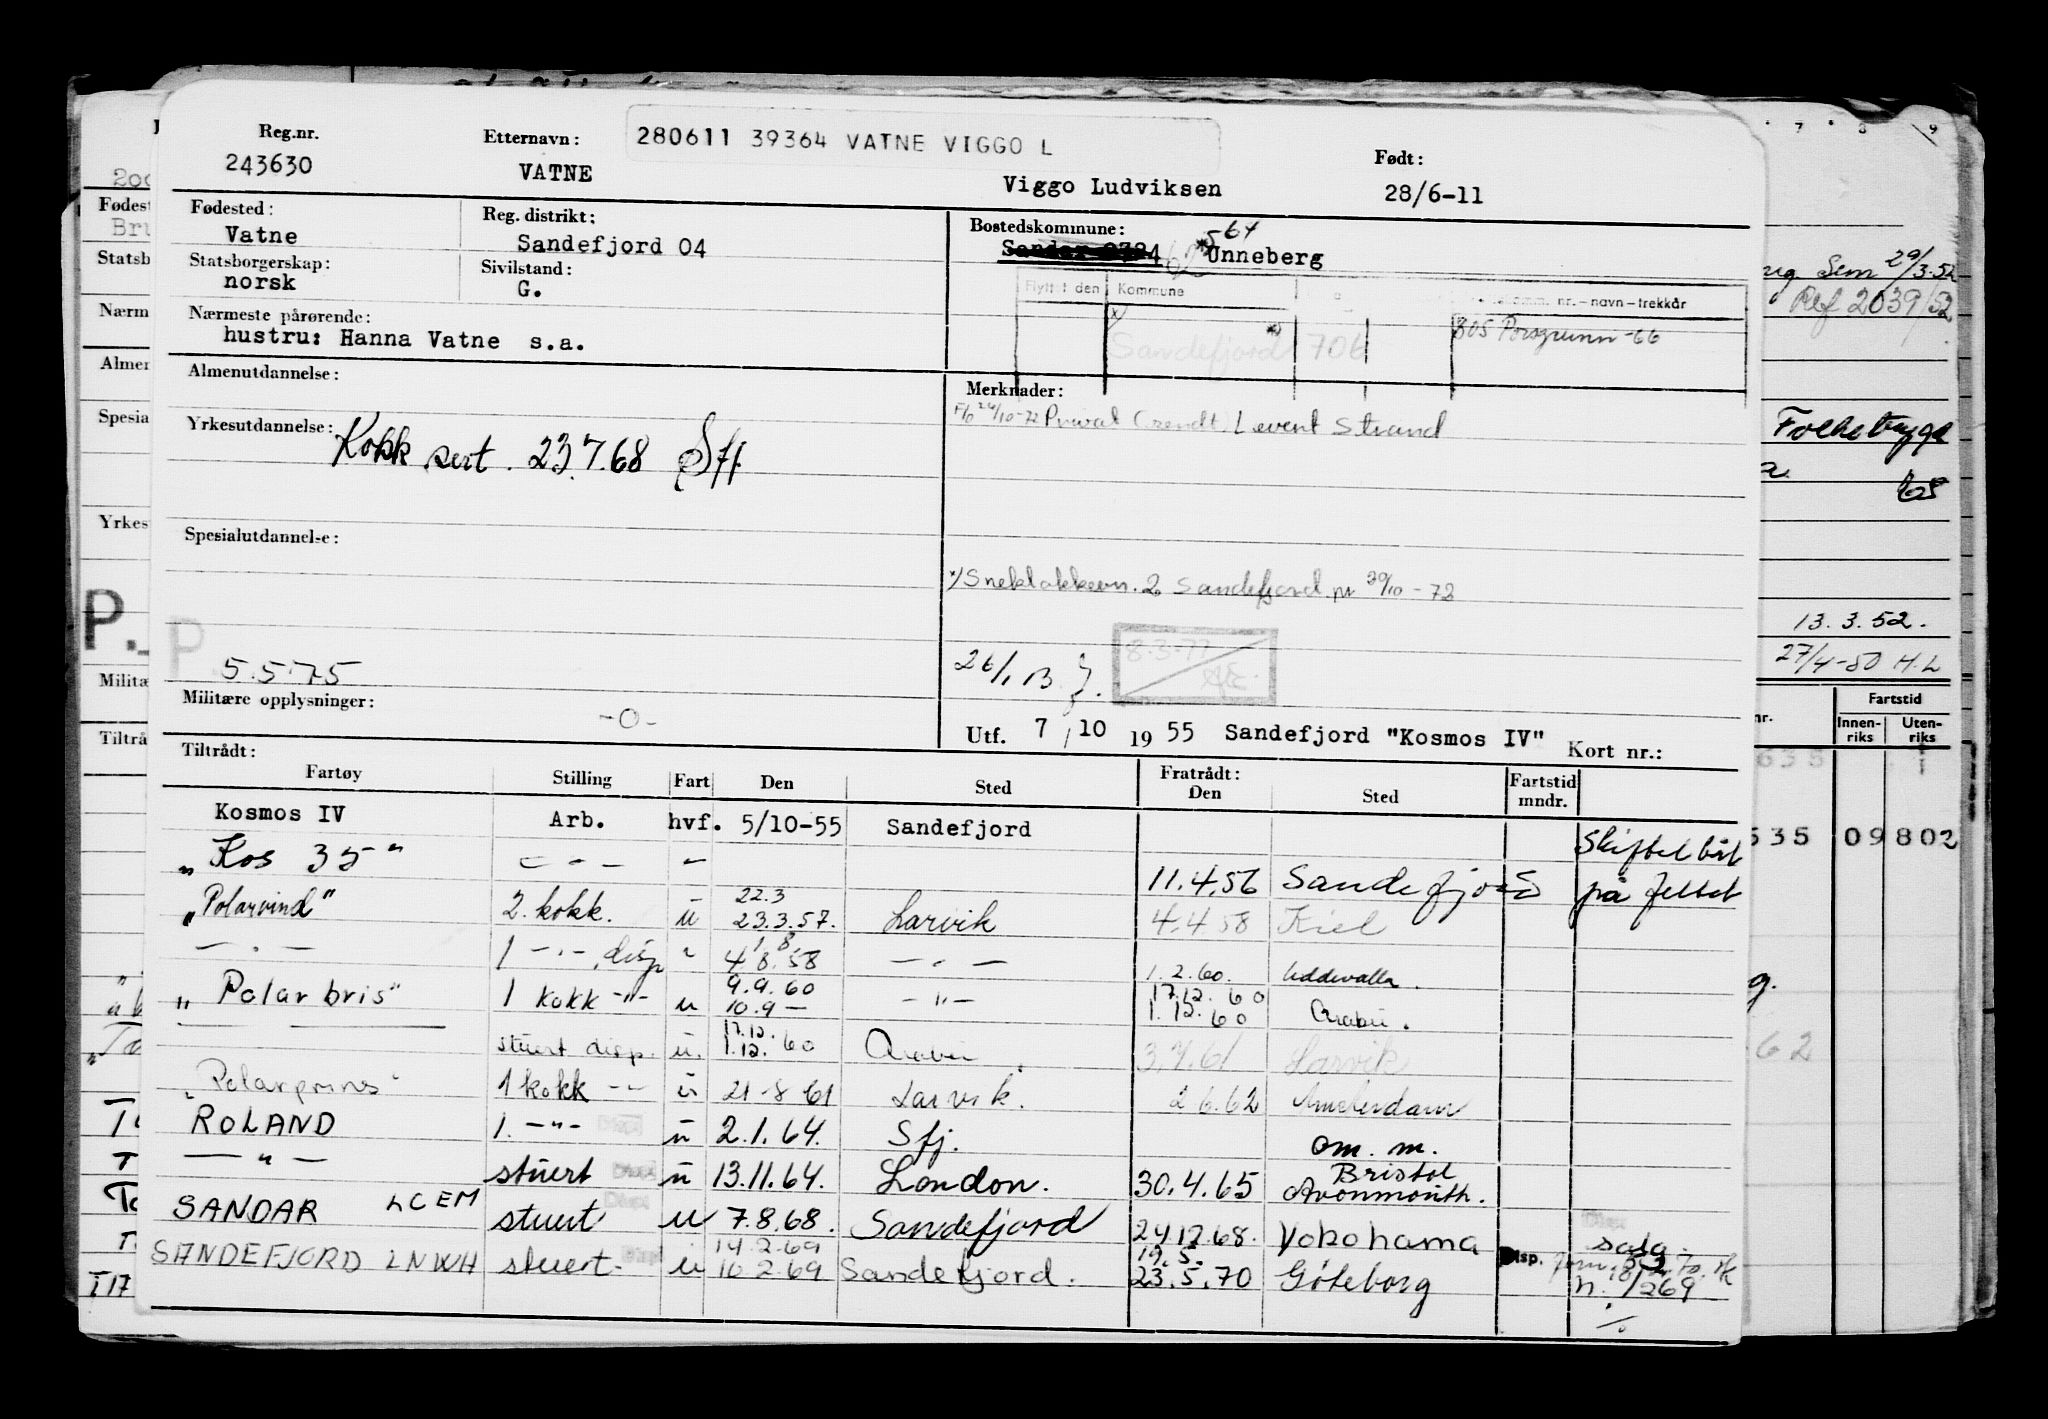 Reg.nr. Etternavn: 280611 39364 VATNE VIGGO L Født:
243630 VATNE Viggo Ludviksen 28/6-11
Fødested: Reg. distrikt: Bostedskommune: 564
Vatne Sandefjord 04 Unneberg
Statsborgerskap: Sivilstand:
norsk G.
Flyttet den Kommune nr.–navn–trekkår
Nærmeste pårørende:
hustru: Hanna Vatne s.a.
x) Sandefjord 706 805 Porsgrunn-66
Almenutdannelse: Merknader:
Levent Strand
Yrkesutdannelse: Kokk sert. 23.7.68 Sff
Spesialutdannelse:
Sandefjord 20/10-72
P
5.5.75
8.3.77
Militære opplysninger: -0-
Utf. 7/10 1955 Sandefjord "Kosmos IV" Kort nr.:
Tiltrådt: Fratrådt:
Fartøy Stilling Fart Den Sted Den Sted Fartstid mndr.
Kosmos IV Arb. hvf. 5/10-55 Sandefjord
"Kos 35" — " — " 11.4.56 Sandefjord Skiftet båt på feltet
22.3
"Polarvind" 2. kokk. u 23.3.57. Larvik 4.4.58 Kiel
1.8.
— " — 1 — " — disp " 4.8.58 — " — 1.2.60. Uddevalla.
9.9.60 17.12.60
"Polarbris" 1 kokk -"- u 10.9 — — " — 1.12.60
17.12.
stuert disp. u. 1.12.60 3.7.61 Larvik
"Polarprins" 1 kokk -"- u 21-8 61 Larvik. 2 6.62 Amsterdam
ROLAND 1. -"- u 2.1.64. Sfj. om. m.
— " — stuert u 13.11.64. London. 30.4.65 Bristol Avonmonth.
SANDAR LCEM stuert u 7.8.68. Sandefjord 24.12.68. Yokohama
14.2.69 19.5.
SANDEFJORD LNWH stuert. u 10.2.69 Sandefjord. 23.5.70 Göteborg Disp.
n. 18/269
Folkebrygd
13.3.52.
27/4-50 H.L
Fartstid
Innenriks Utenriks
535 09802
Sem 29/3.52
Ref 2039/52